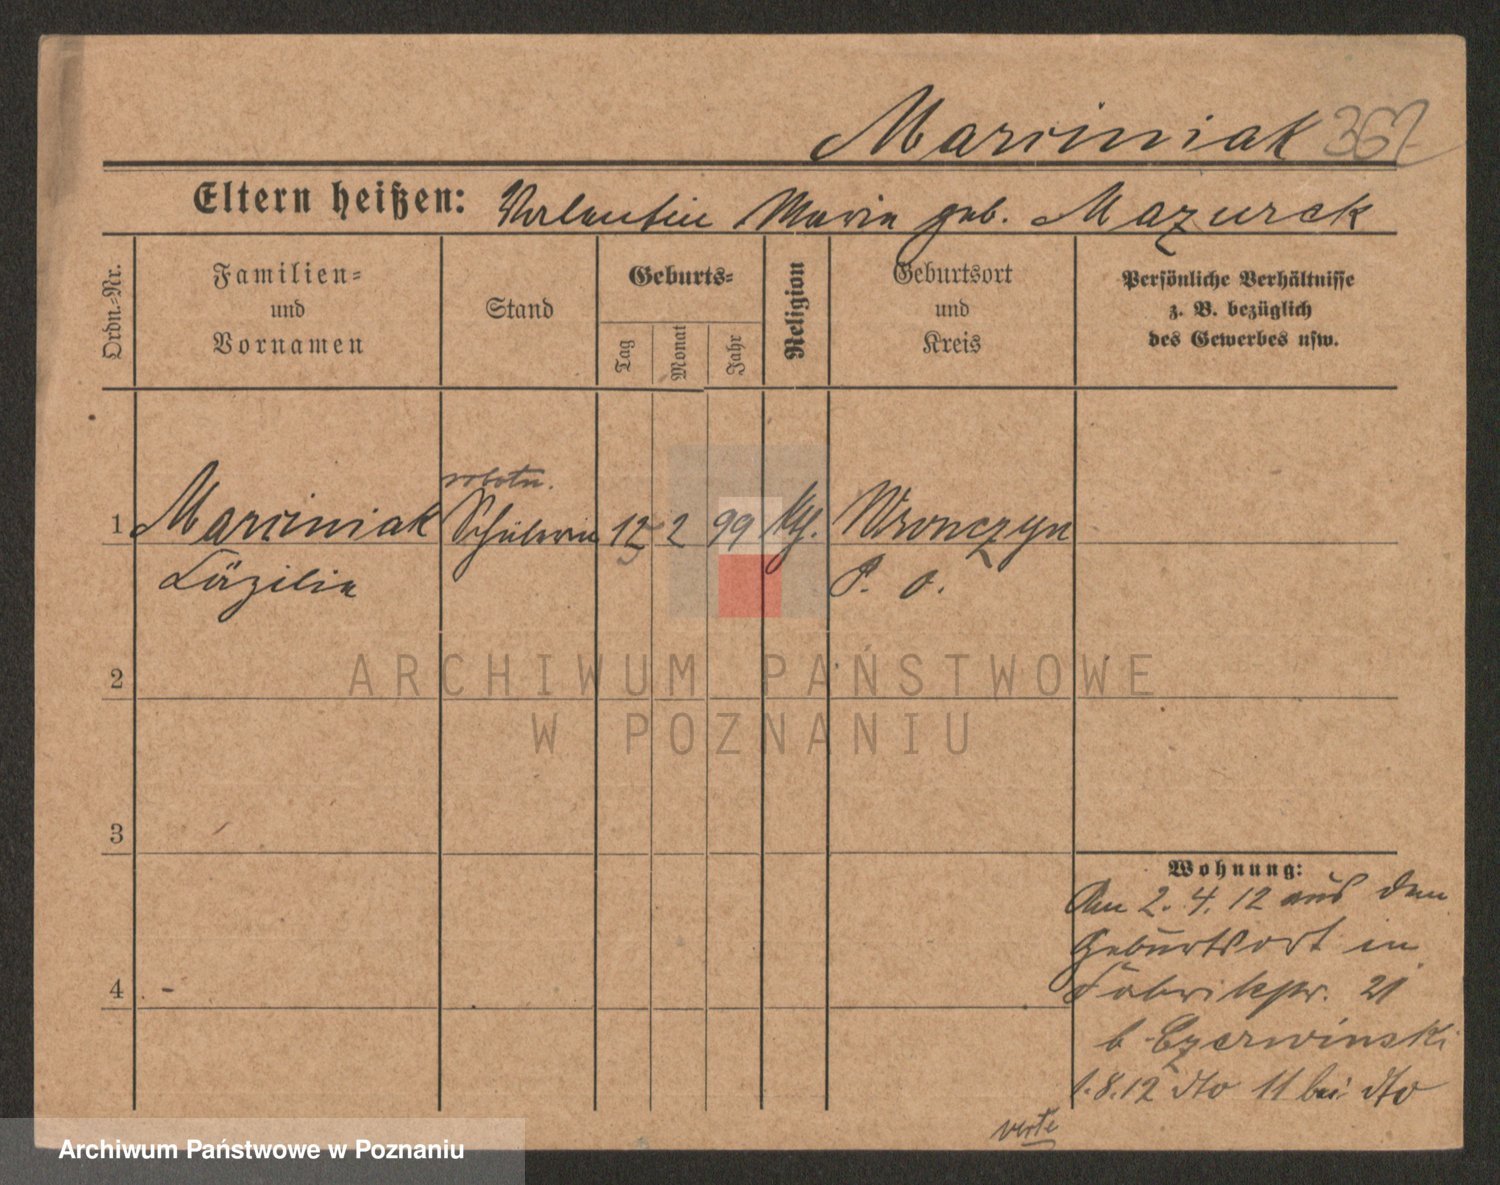 Marciniak 367
Eltern heißen: Valentin Marie geb. Mazurek
Ordn.-Nr.
Familien-
und
Vornamen
Stand
Geburts-
Tag
Monat
Jahr
Religion
Geburtsort
und
Kreis
Persönliche Verhältnisse
z. B. bezüglich
des Gewerbes usw.
robotn.
1 Marciniak Schülerin 12 2 99 kth. Wronczyn
Cäzilie P. O.
ARCHIWUM PAŃSTWOWE
W POZNANIU
2
3
4
Wohnung:
Am 2. 4. 12 aus dem
Geburtsort in
Fabrikstr. 21
b Czerwinski
1.8.12 dto 11 bei dto
verte
Archiwum Państwowe w Poznaniu